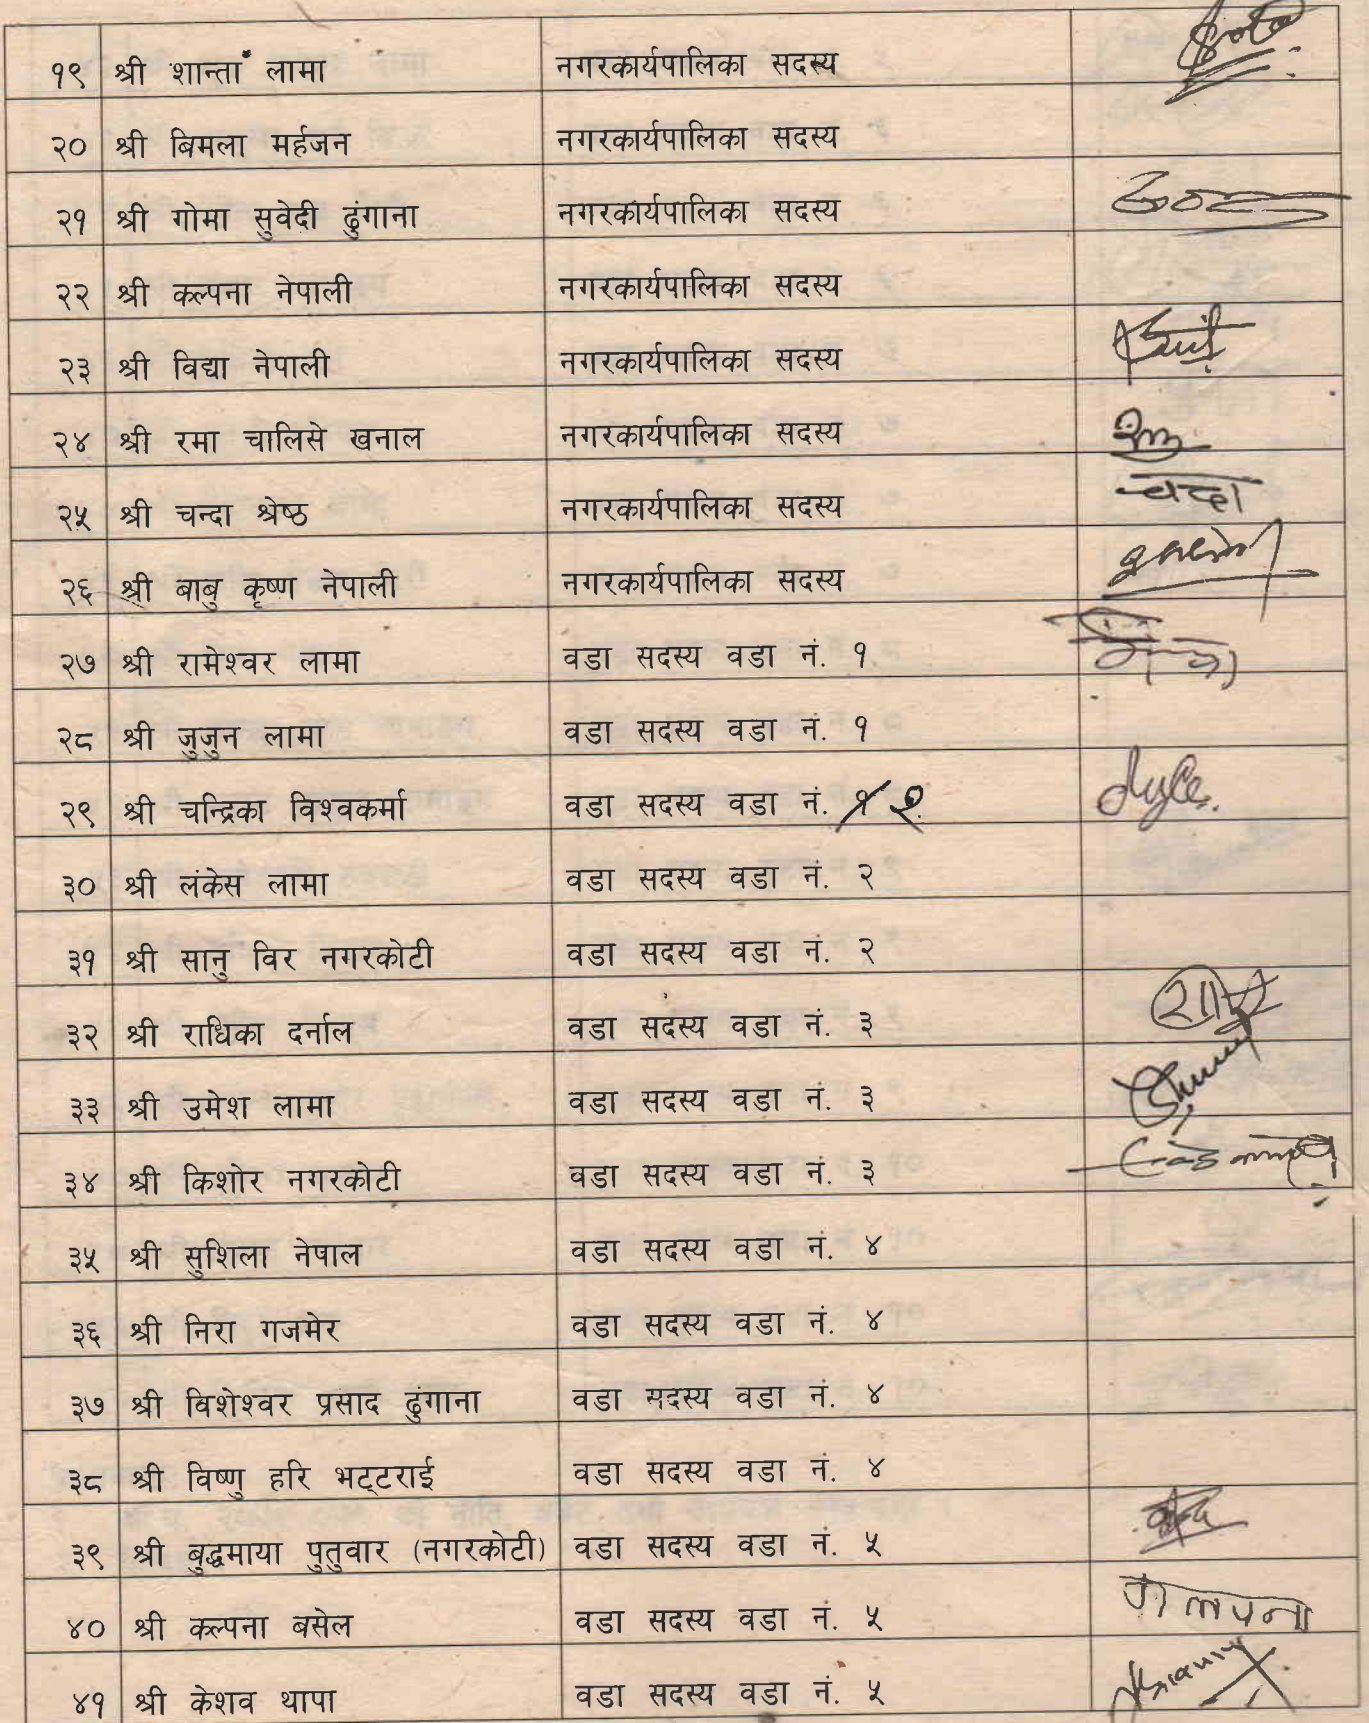 १९ श्री शान्ता लामा नगरकार्यपालिका सदस्य
२० श्री बिमला मर्हजन नगरकार्यपालिका सदस्य
२१ श्री गोमा सुवेदी ढुंगाना नगरकार्यपालिका सदस्य
२२ श्री कल्पना नेपाली नगरकार्यपालिका सदस्य
२३ श्री विद्या नेपाली नगरकार्यपालिका सदस्य
२४ श्री रमा चालिसे खनाल नगरकार्यपालिका सदस्य
२५ श्री चन्दा श्रेष्ठ नगरकार्यपालिका सदस्य चन्दा
२६ श्री बाबु कृष्ण नेपाली नगरकार्यपालिका सदस्य
२७ श्री रामेश्वर लामा वडा सदस्य वडा नं. १
२८ श्री जुजुन लामा वडा सदस्य वडा नं. १
२९ श्री चन्द्रिका विश्वकर्मा वडा सदस्य वडा नं. १ २
३० श्री लंकेस लामा वडा सदस्य वडा नं. २
३१ श्री सानु विर नगरकोटी वडा सदस्य वडा नं. २
३२ श्री राधिका दर्नाल वडा सदस्य वडा नं. ३
३३ श्री उमेश लामा वडा सदस्य वडा नं. ३
३४ श्री किशोर नगरकोटी वडा सदस्य वडा नं. ३
३५ श्री सुशिला नेपाल वडा सदस्य वडा नं. ४
३६ श्री निरा गजमेर वडा सदस्य वडा नं. ४
३७ श्री विशेश्वर प्रसाद ढुंगाना वडा सदस्य वडा नं. ४
३८ श्री विष्णु हरि भट्टराई वडा सदस्य वडा नं. ४
३९ श्री बुद्धमाया पुतुवार (नगरकोटी) वडा सदस्य वडा नं. ५
४० श्री कल्पना बसेल वडा सदस्य वडा नं. ५ कल्पना
४१ श्री केशव थापा वडा सदस्य वडा नं. ५